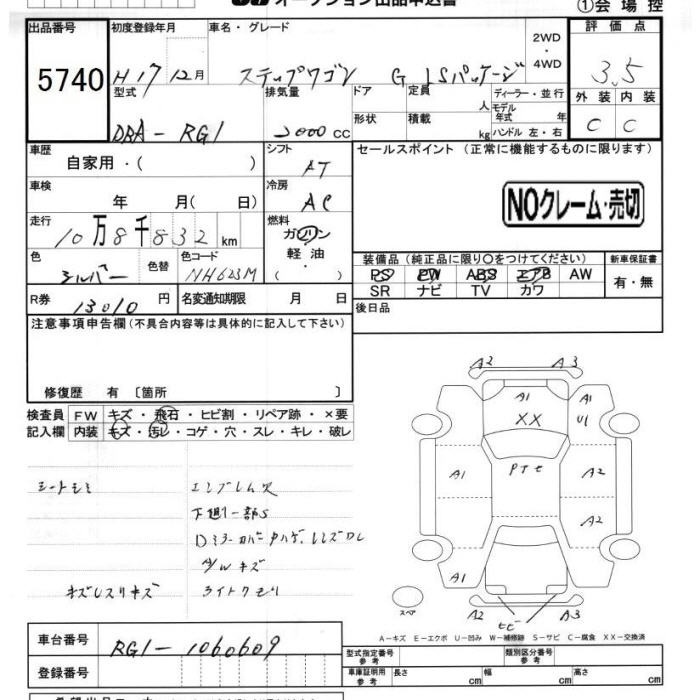 オークション出品申込書
①会場控
出品番号 初度登録年月 車名・グレード 2WD・4WD 評価点
5740 H17 12月 ステップワゴン G LSパッケージ 3.5
型式 排気量 ドア 定員 人 ディーラー・並行 外装 内装
DBA-RG1 2000cc 形状 積載 kg モデル年式 年 ハンドル 左・右 C C
車歴 シフト セールスポイント (正常に機能するものに限ります)
自家用・( ) AT
車検 冷房
年 月( 日) AC NOクレーム・売切
走行 燃料
10万8千832km ガソリン
軽油・
( )
色 色替 色コード 装備品 (純正品に限り○をつけてください) 新車保証書
シルバー NH623M PS PW ABS エアB AW 有・無
SR ナビ TV カワ
R券 13010円 名変通知期限 月 日 後日品
注意事項申告欄 (不具合内容等は具体的に記入して下さい)
修復歴 有 〔箇所 〕
検査員 FW キズ・飛石・ヒビ割・リペア跡・×要
記入欄 内装 キズ・汚レ・コゲ・穴・スレ・キレ・破レ
シートシミ エンブレム欠
下廻り一部S
A/Wキズ
キズレスリキズ ライトクモリ
A2 A3
A1 A1
XX U1
A1 PTセ A2
A2
A1
A2 ヒビ A3
スペア
A-キズ E-エクボ U-凹み W-補修跡 S-サビ C-腐食 XX-交換済
車台番号 RG1-1060609
型式指定番号 参考 類別区分番号 参考
登録番号 車庫証明用 参考 長さ cm 幅 cm 高さ cm